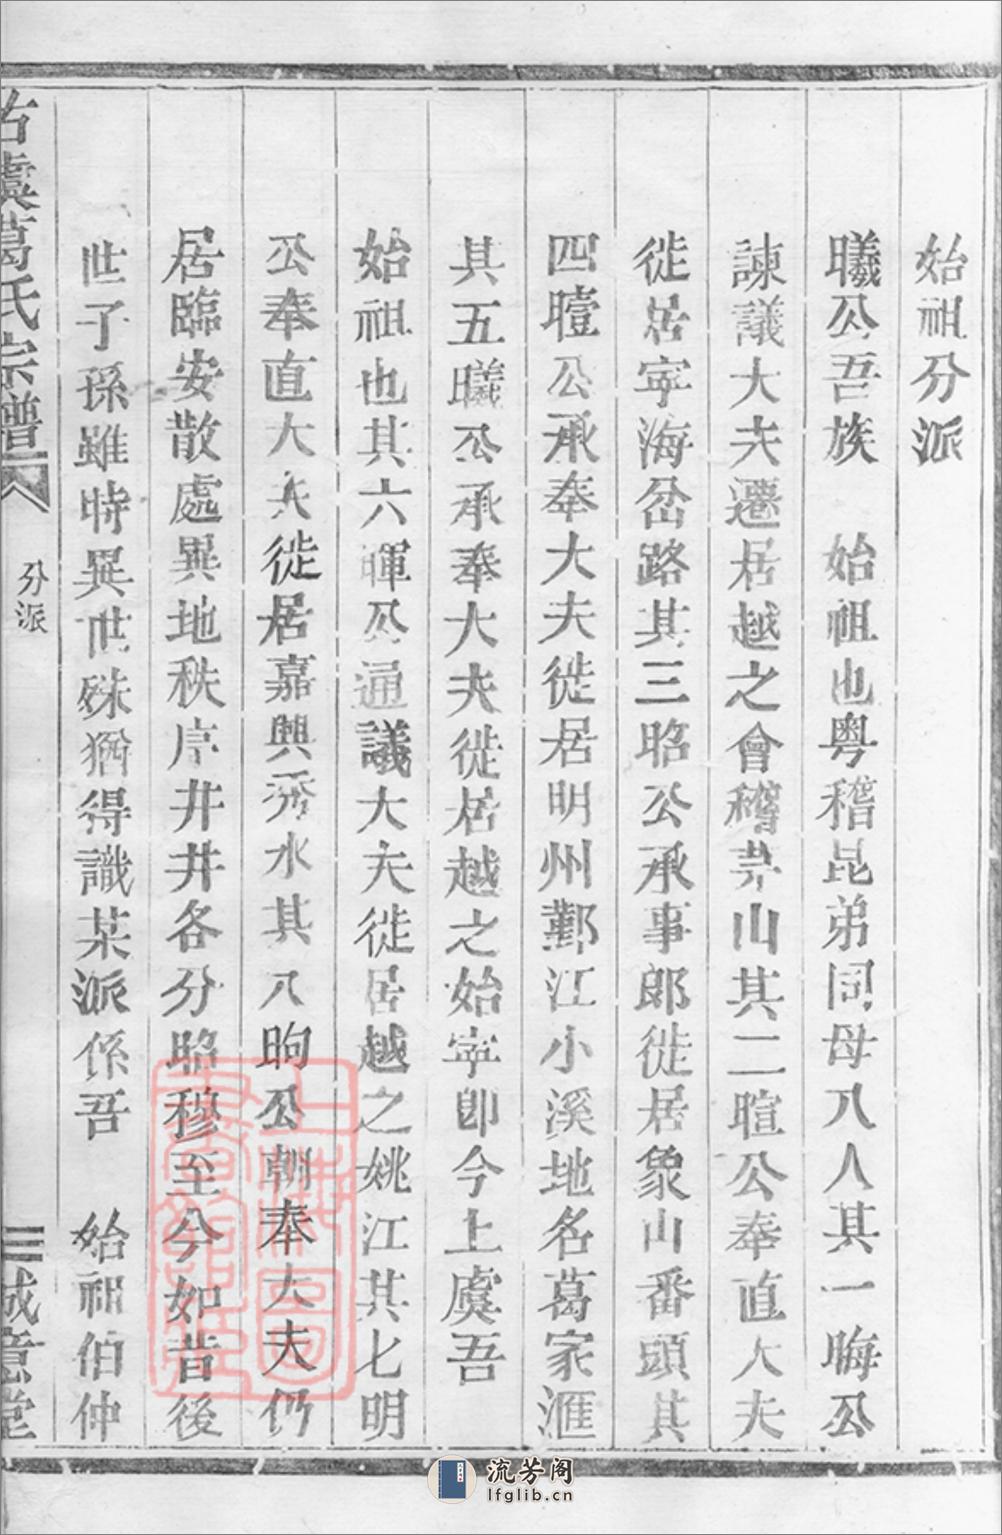 始祖分派
曦公吾族　始祖也粵稽昆弟同母八人其一晦公
諫議大夫遷居越之會稽茅山其二暄公奉直大夫
徙居寧海岔路其三昭公承事郎徙居象山番頭其
四曀公承奉大夫徙居明州鄞江小溪地名葛家滙
其五曦公承奉大夫徙居越之始寧即今上虞吾
始祖也其六暉公通議大夫徙居越之姚江其七明
公奉直大夫徙居嘉興秀水其八昫公朝奉大夫仍
居臨安散處異地秩序井井各分昭穆至今如昔後
世子孫雖時異世殊猶得識某派係吾　始祖伯仲
古虞葛氏宗譜
分派
三
誠意堂
上海圖書館藏
流芳阁
lfglib.cn